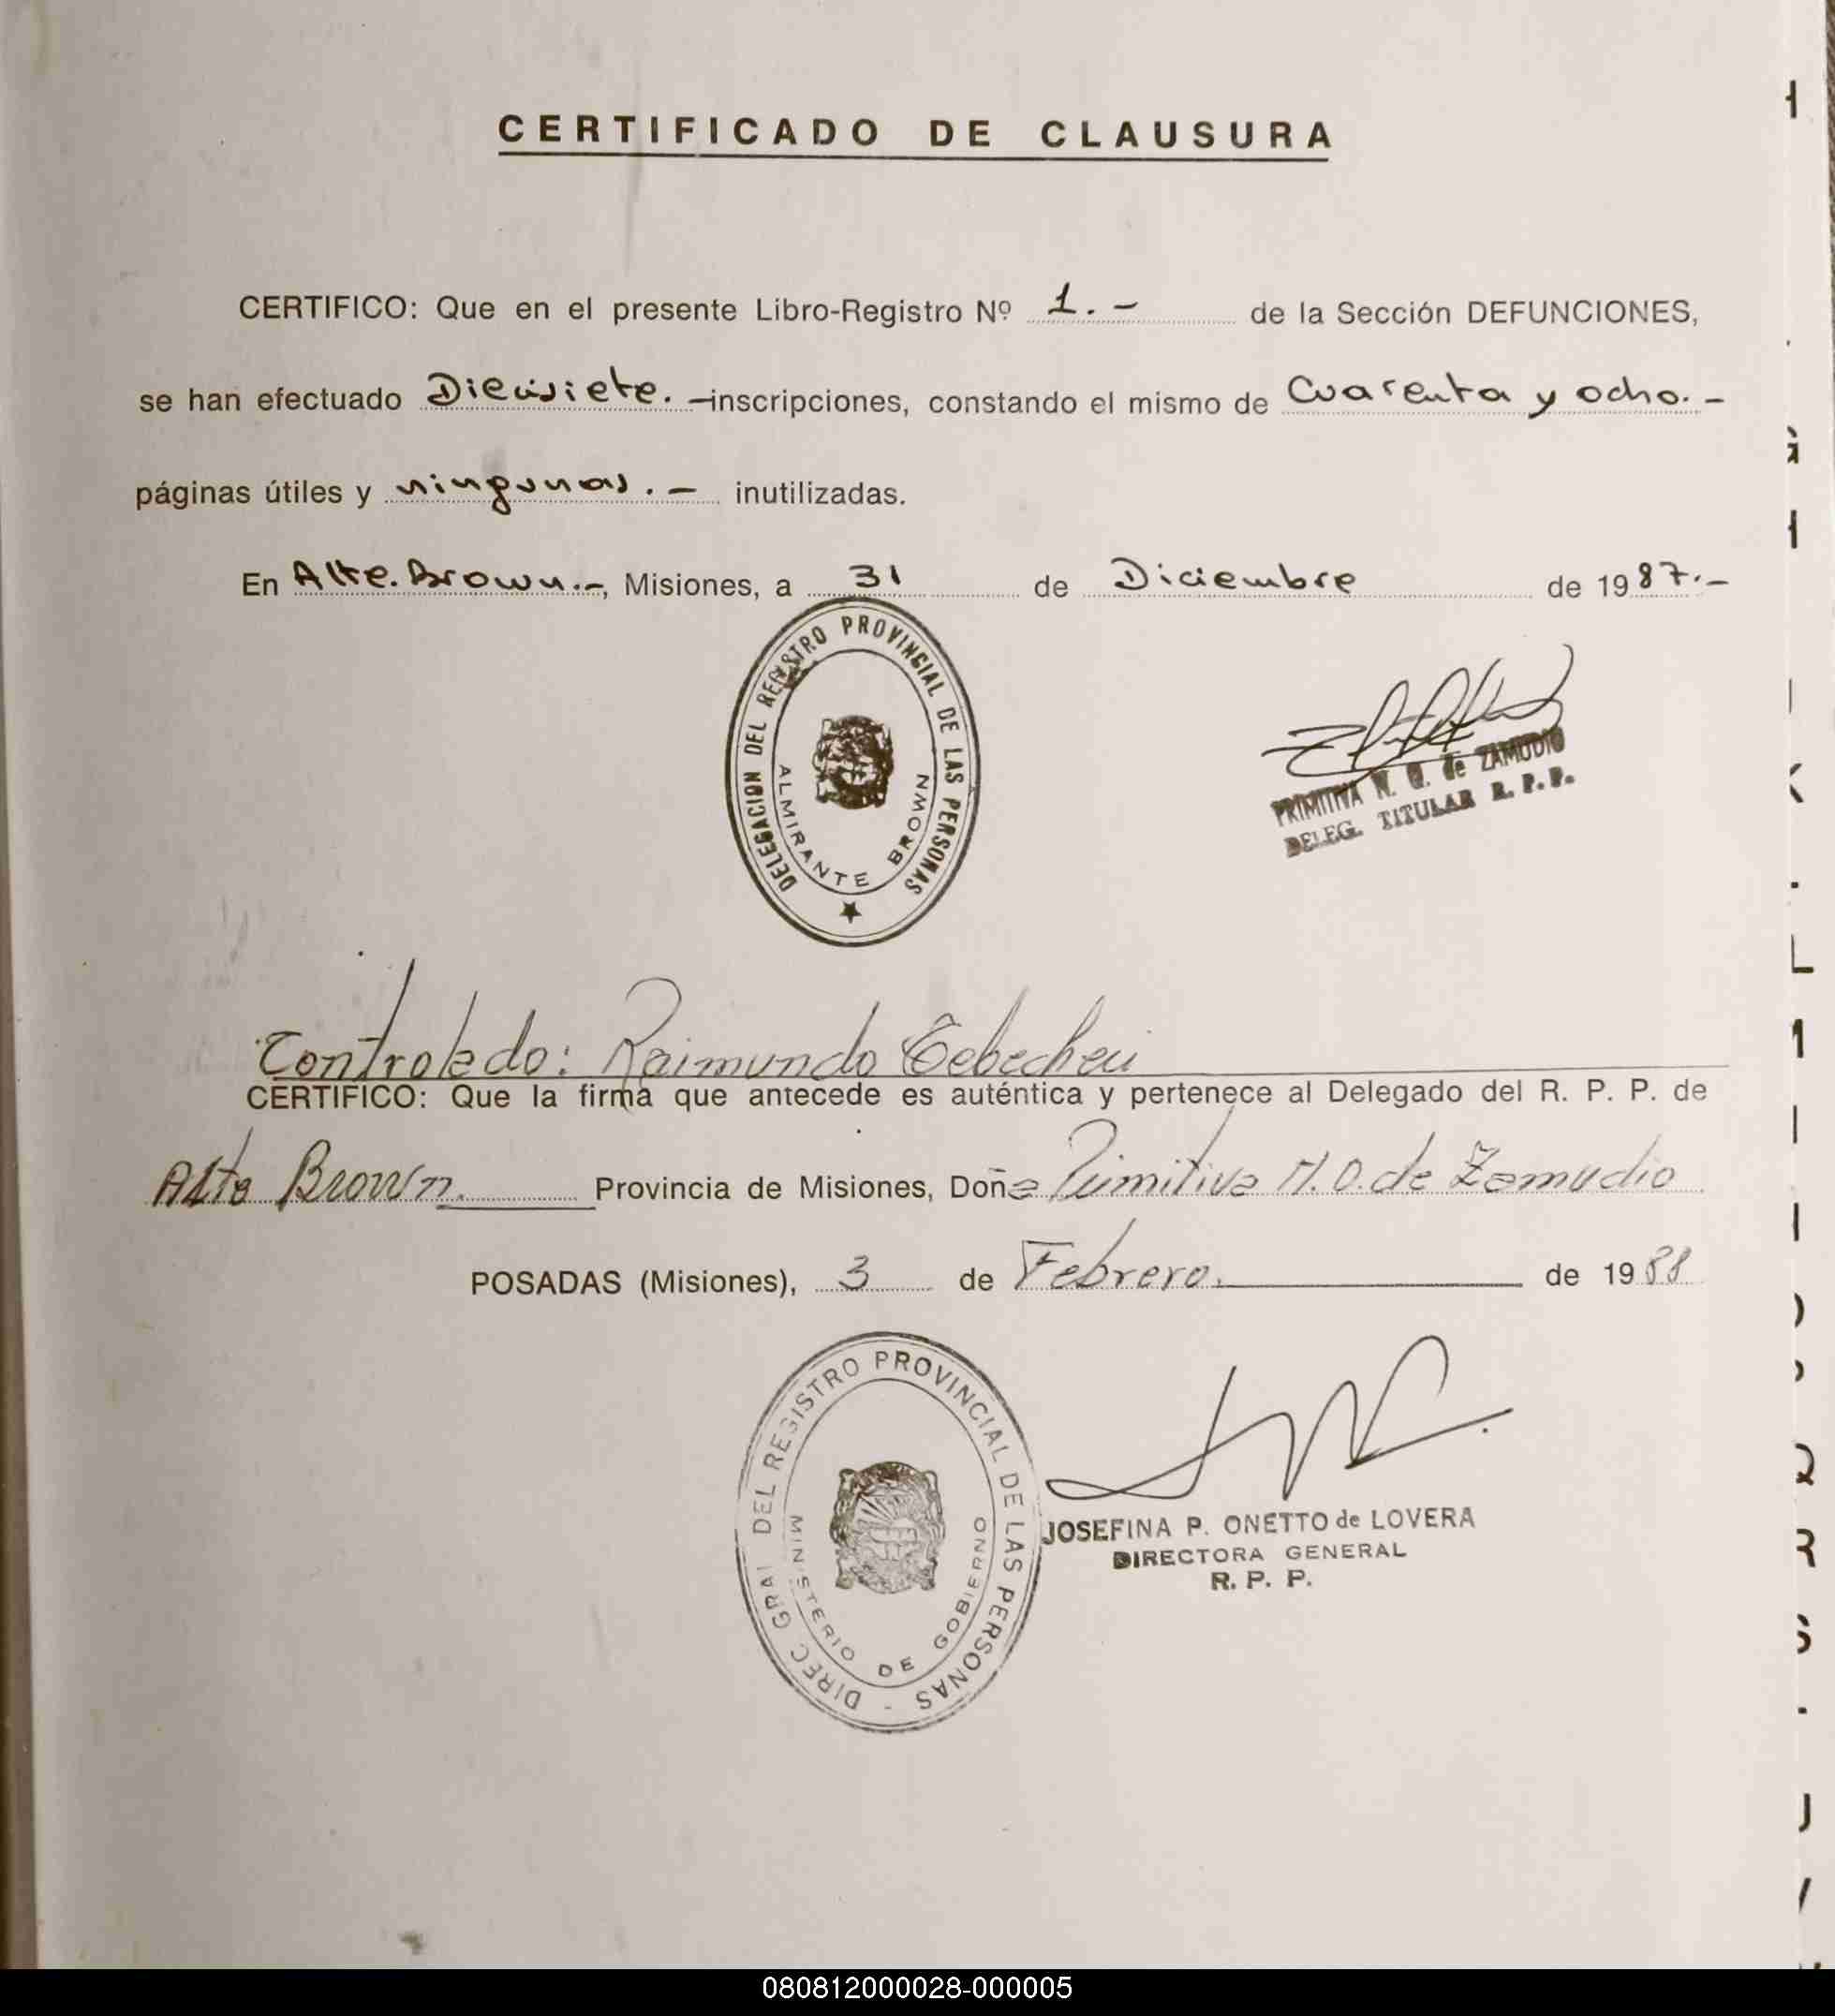 CERTIFICADO DE CLAUSURA
CERTIFICO: Que en el presente Libro-Registro Nº 1.- de la Sección DEFUNCIONES,
se han efectuado Diecisiete.- inscripciones, constando el mismo de Cuarenta y ocho.-
páginas útiles y ningunas.- inutilizadas.
En Alte. Brown.-, Misiones, a 31 de Diciembre de 1987.-
DELEGACION DEL REGISTRO PROVINCIAL DE LAS PERSONAS
ALMIRANTE BROWN
PRIMITIVA N. O. de ZAMUDIO
DELEG. TITULAR R. P. P.
Controlado: Raimundo
CERTIFICO: Que la firma que antecede es auténtica y pertenece al Delegado del R. P. P. de
Alte Brown. Provincia de Misiones, Doña Primitiva N.O. de Zamudio
POSADAS (Misiones), 3 de Febrero. de 1988
DIREC GRAL DEL REGISTRO PROVINCIAL DE LAS PERSONAS -
MINISTERIO DE GOBIERNO
JOSEFINA P. ONETTO de LOVERA
DIRECTORA GENERAL
R. P. P.
080812000028-000005